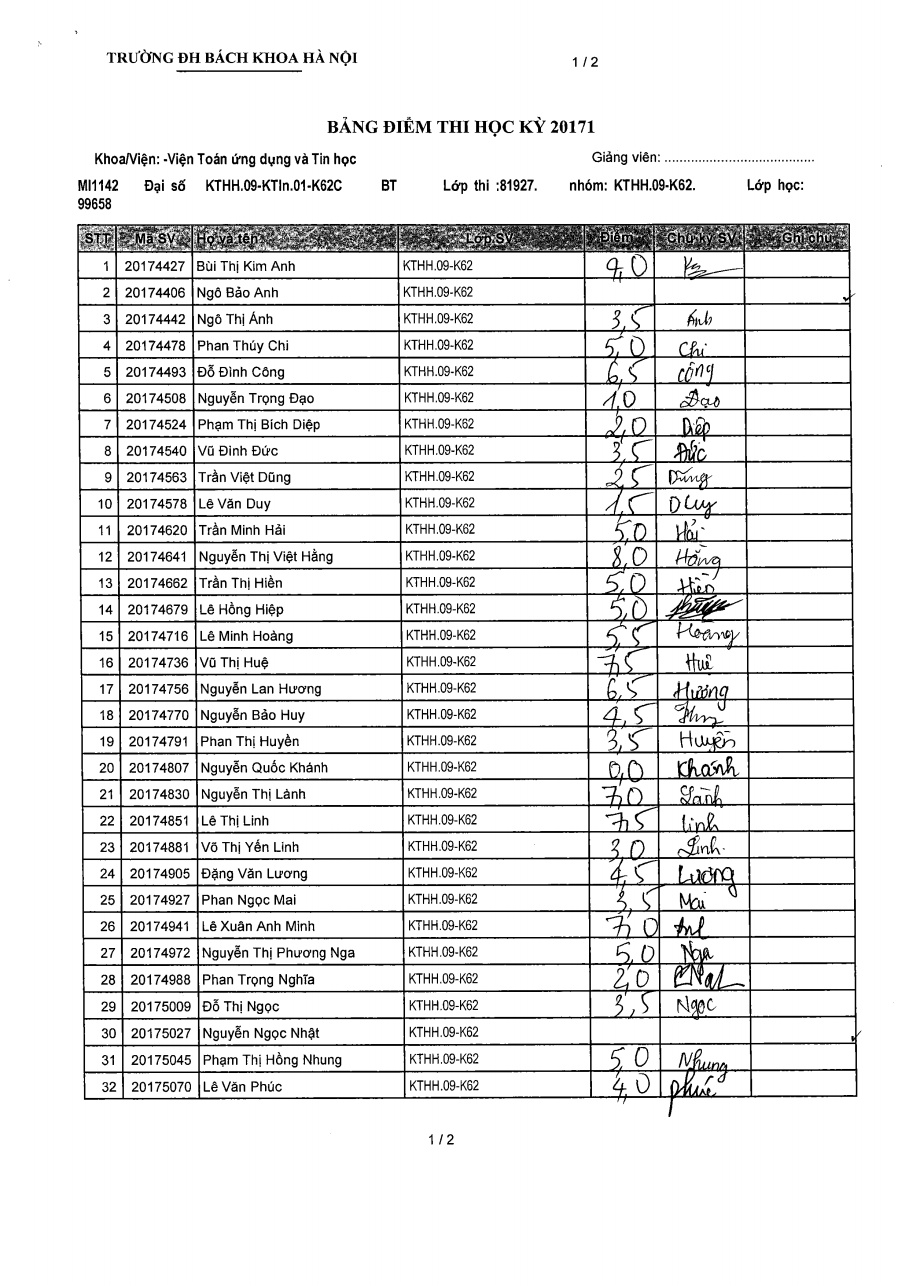 TRƯỜNG ĐH BÁCH KHOA HÀ NỘI 1 / 2
BẢNG ĐIỂM THI HỌC KỲ 20171
Khoa/Viện: -Viện Toán ứng dụng và Tin học Giảng viên: ......................................
MI1142 Đại số KTHH.09-KTIn.01-K62C BT Lớp thi :81927. nhóm: KTHH.09-K62. Lớp học:
99658
STT Mã SV Họ và tên Lớp SV Điểm Chữ ký SV Ghi chú
1 20174427 Bùi Thị Kim Anh KTHH.09-K62 9,0
2 20174406 Ngô Bảo Anh KTHH.09-K62
3 20174442 Ngô Thị Ánh KTHH.09-K62 3,5 Ánh
4 20174478 Phan Thúy Chi KTHH.09-K62 5,0 Chi
5 20174493 Đỗ Đình Công KTHH.09-K62 6,5 công
6 20174508 Nguyễn Trọng Đạo KTHH.09-K62 1,0 Đạo
7 20174524 Phạm Thị Bích Diệp KTHH.09-K62 2,0 Diệp
8 20174540 Vũ Đình Đức KTHH.09-K62 3,5 Đức
9 20174563 Trần Việt Dũng KTHH.09-K62 2,5 Dũng
10 20174578 Lê Văn Duy KTHH.09-K62 1,5 Duy
11 20174620 Trần Minh Hải KTHH.09-K62 5,0 Hải
12 20174641 Nguyễn Thị Việt Hằng KTHH.09-K62 8,0 Hằng
13 20174662 Trần Thị Hiền KTHH.09-K62 5,0 Hiền
14 20174679 Lê Hồng Hiệp KTHH.09-K62 5,0
15 20174716 Lê Minh Hoàng KTHH.09-K62 5,5 Hoàng
16 20174736 Vũ Thị Huệ KTHH.09-K62 7,5 Huệ
17 20174756 Nguyễn Lan Hương KTHH.09-K62 6,5 Hương
18 20174770 Nguyễn Bảo Huy KTHH.09-K62 4,5
19 20174791 Phan Thị Huyền KTHH.09-K62 3,5 Huyền
20 20174807 Nguyễn Quốc Khánh KTHH.09-K62 0,0 Khánh
21 20174830 Nguyễn Thị Lành KTHH.09-K62 7,0 Lành
22 20174851 Lê Thị Linh KTHH.09-K62 7,5 linh
23 20174881 Võ Thị Yến Linh KTHH.09-K62 3,0 Linh
24 20174905 Đặng Văn Lương KTHH.09-K62 4,5 Lương
25 20174927 Phan Ngọc Mai KTHH.09-K62 3,5 Mai
26 20174941 Lê Xuân Anh Minh KTHH.09-K62 7,0
27 20174972 Nguyễn Thị Phương Nga KTHH.09-K62 5,0 Nga
28 20174988 Phan Trọng Nghĩa KTHH.09-K62 2,0
29 20175009 Đỗ Thị Ngọc KTHH.09-K62 3,5 Ngọc
30 20175027 Nguyễn Ngọc Nhật KTHH.09-K62
31 20175045 Phạm Thị Hồng Nhung KTHH.09-K62 5,0 Nhung
32 20175070 Lê Văn Phúc KTHH.09-K62 4,0 phúc
1 / 2